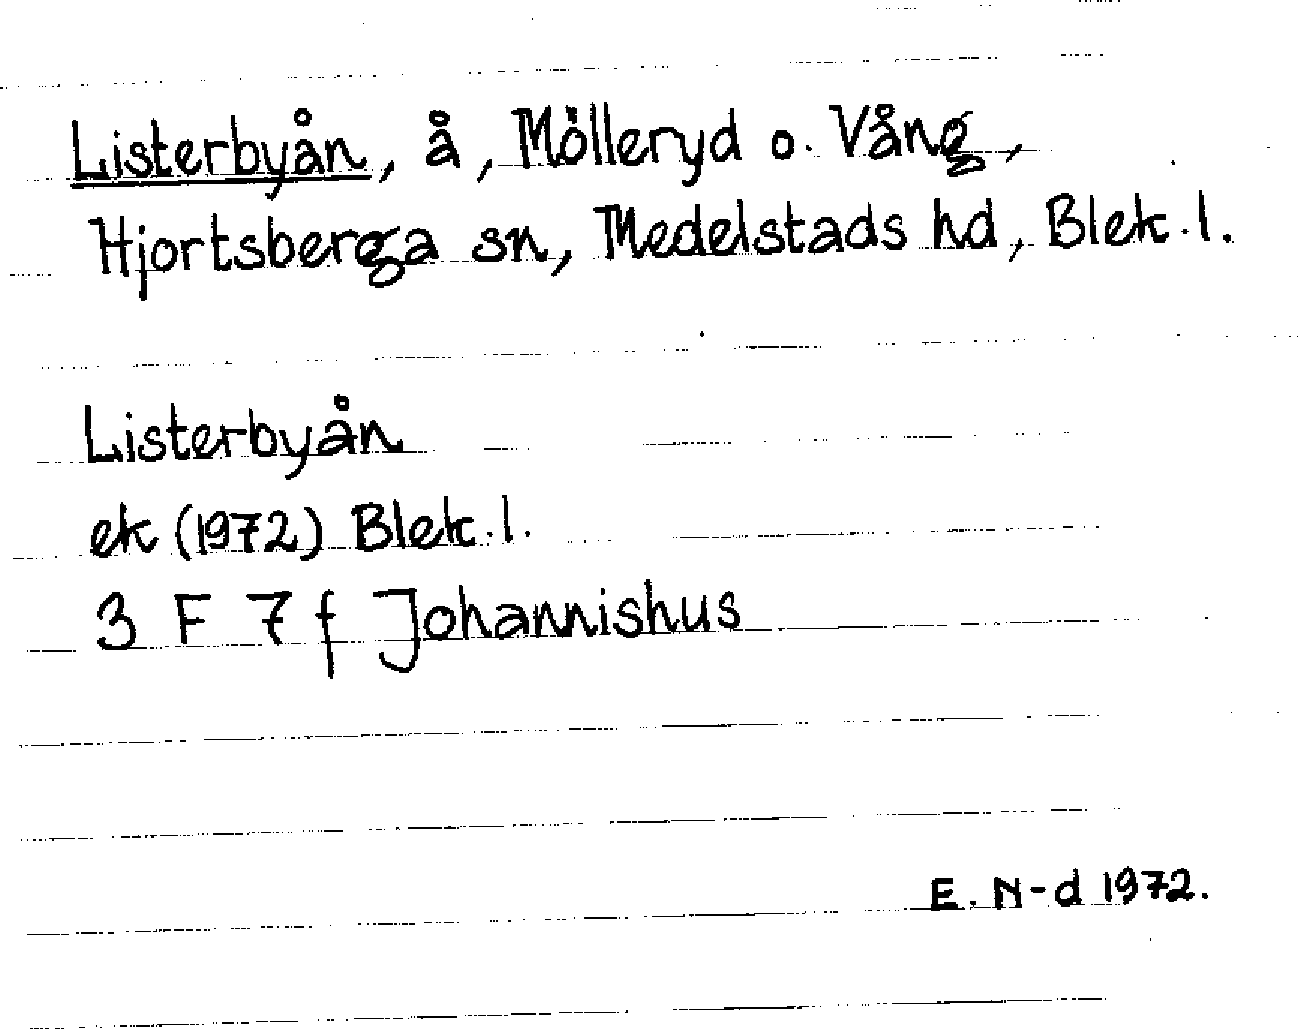 Listerbyån, å, Mölleryd o. Vång,
Hjortsberga sn, Medelstads hd, Blek. l.
Listerbyån
ek (1972) Blek. l.
3 F 7 f Johannishus
E. N-d 1972.